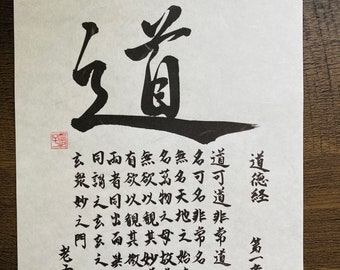 道
道德経 第一章
道可道非常道
名可名非常名
無名天地之始
名萬物之母故
無欲以観其妙
有欲以観其徼
兩者同出而異
同謂之玄玄之
玄衆妙之門
老子